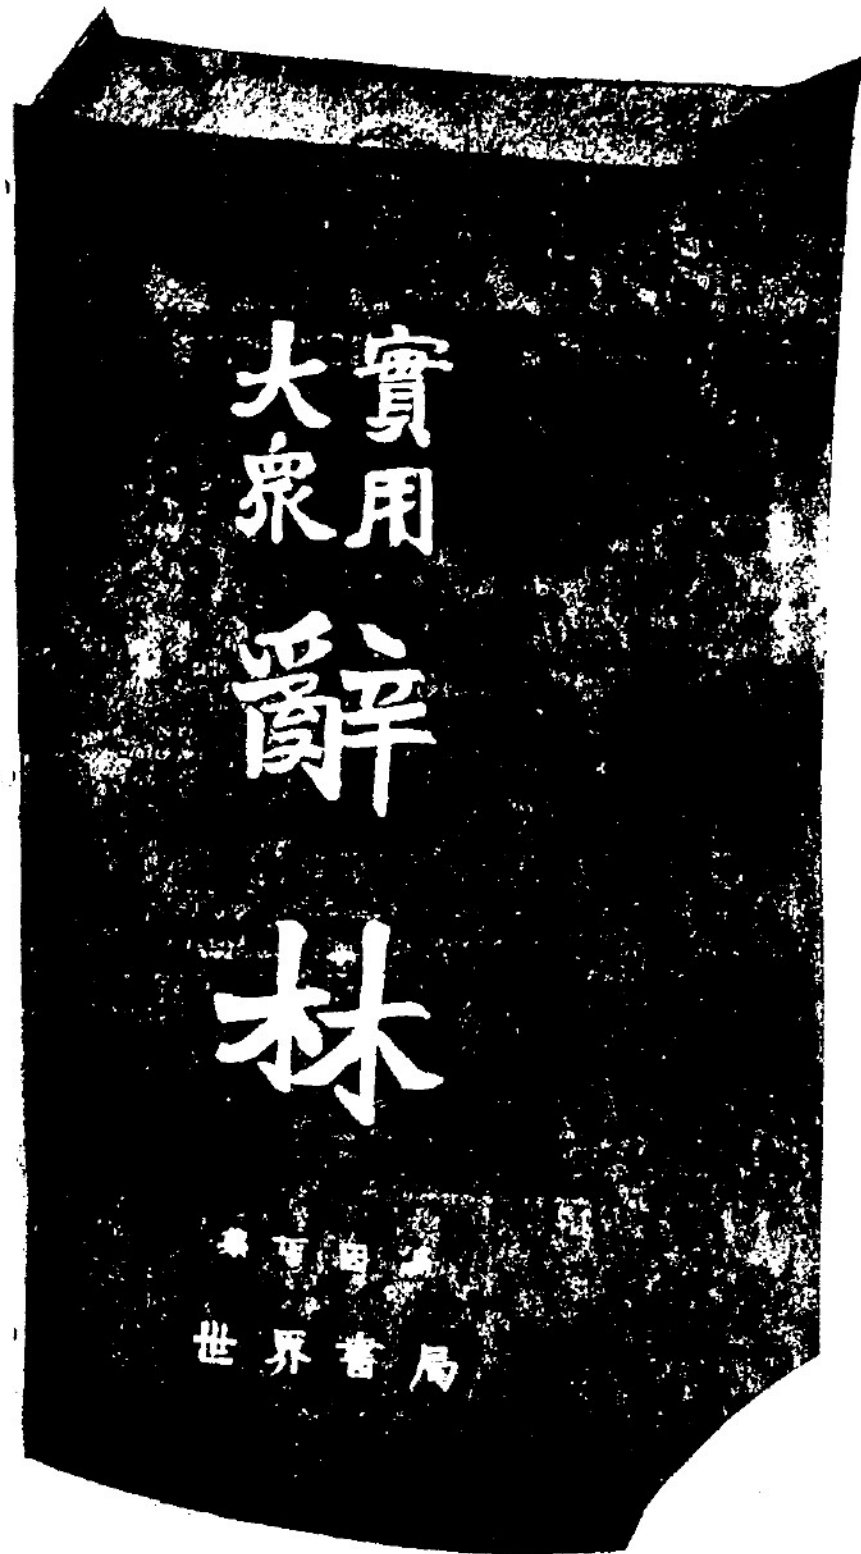 實用
大衆
辭林
世界書局